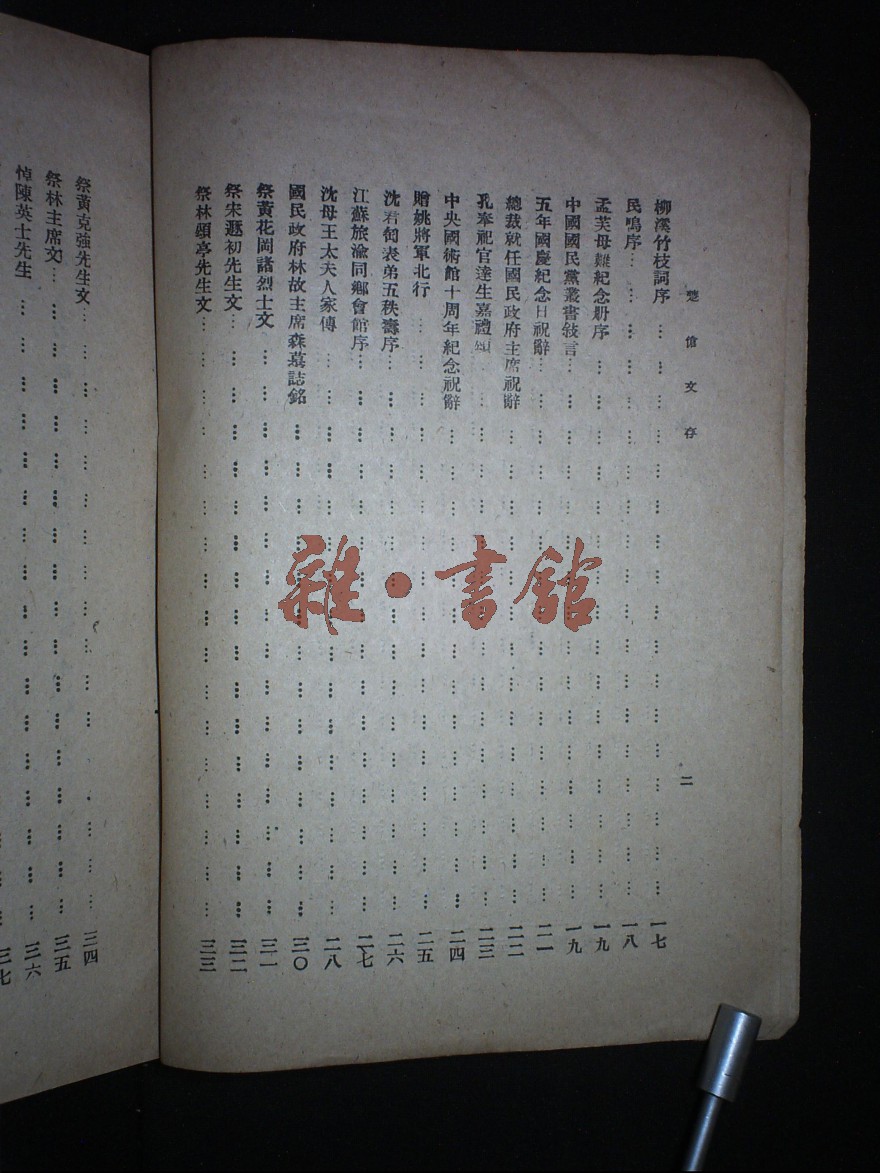 楚傖文存
二
柳溪竹枝詞序 … … … … … … … … … 一七
民鳴序 … … … … … … … … … 一八
孟芙母難紀念册序 … … … … … … … … … 一九
中國國民黨叢書敍言 … … … … … … … … … 一九
五年國慶紀念日祝辭 … … … … … … … … … 二一
總裁就任國民政府主席祝辭 … … … … … … … … 二二
孔奉祀官達生嘉禮頌 … … … … … … … … … 二三
中央國術館十周年紀念祝辭 … … … … … … … … 二四
贈姚將軍北行 … … … … … … … … … 二五
沈君匋表弟五秩壽序 … … … … … … … … … 二六
江蘇旅渝同鄉會館序 … … … … … … … … … 二七
沈母王太夫人家傳 … … … … … … … … … 二八
國民政府林故主席森墓誌銘 … … … … … … … … 三〇
祭黃花岡諸烈士文 … … … … … … … … … 三一
祭宋遯初先生文 … … … … … … … … … 三二
祭林頌亭先生文 … … … … … … … … … 三三
祭黃克強先生文 … … … … … … … … … 三四
祭林主席文 … … … … … … … … … 三五
悼陳英士先生 … … … … … … … … … 三六
三七
雜·書館